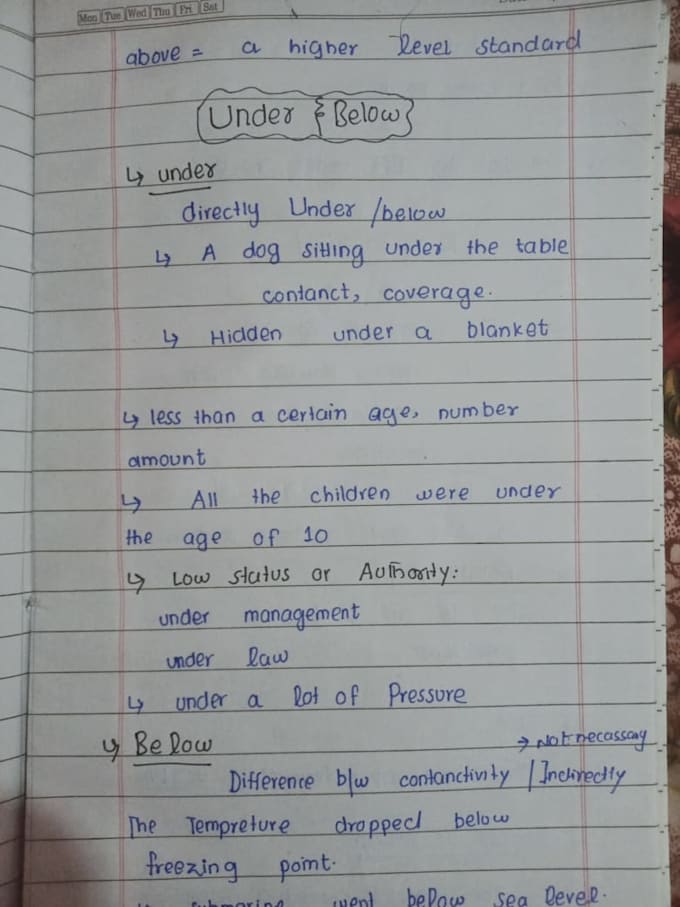 Mon Tue Wed Thu Fri Sat
above = a higher level standard
Under & Below
↳ under
directly Under /below
↳ A dog sitting under the table
contanct, coverage.
↳ Hidden under a blanket
↳ less than a certain age, number
amount
↳ All the children were under
the age of 10
↳ Low status or Authority:
under management
under law
↳ under a lot of Pressure
↳ Below
→ Not necassary
Difference b/w contanctivity / Indirectly
The Tempreture dropped below
freezing point.
submarine went below sea level.